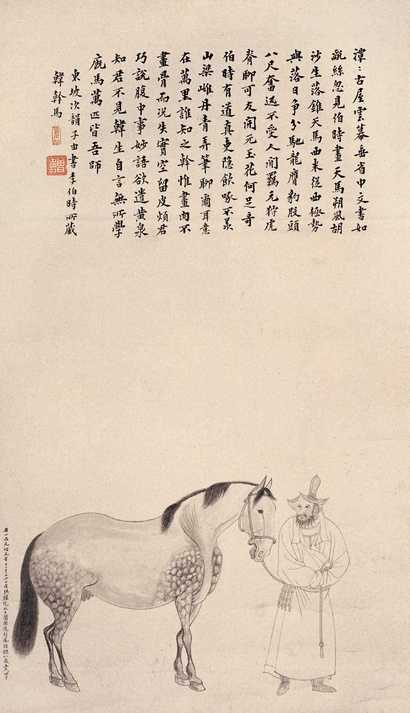 潭〻古屋雲幕垂省中文書如
亂絲忽見伯時畫天馬朔風胡
沙生落錐天馬西來從西極勢
與落日爭分馳龍膺豹股頭
八尺奮迅不受人間羈元狩虎
脊聊可友開元玉花何足奇
伯時有道真吏隱飲啄不羨
山梁雌丹青弄筆聊爾耳意
在萬里誰知之幹惟畫肉不
畫骨而況失實空留皮煩君
巧說腹中事妙語欲遣黃泉
知君不見韓生自言無所學
廄馬萬匹皆吾師
東坡次韻子由書李伯時所藏
韓幹馬